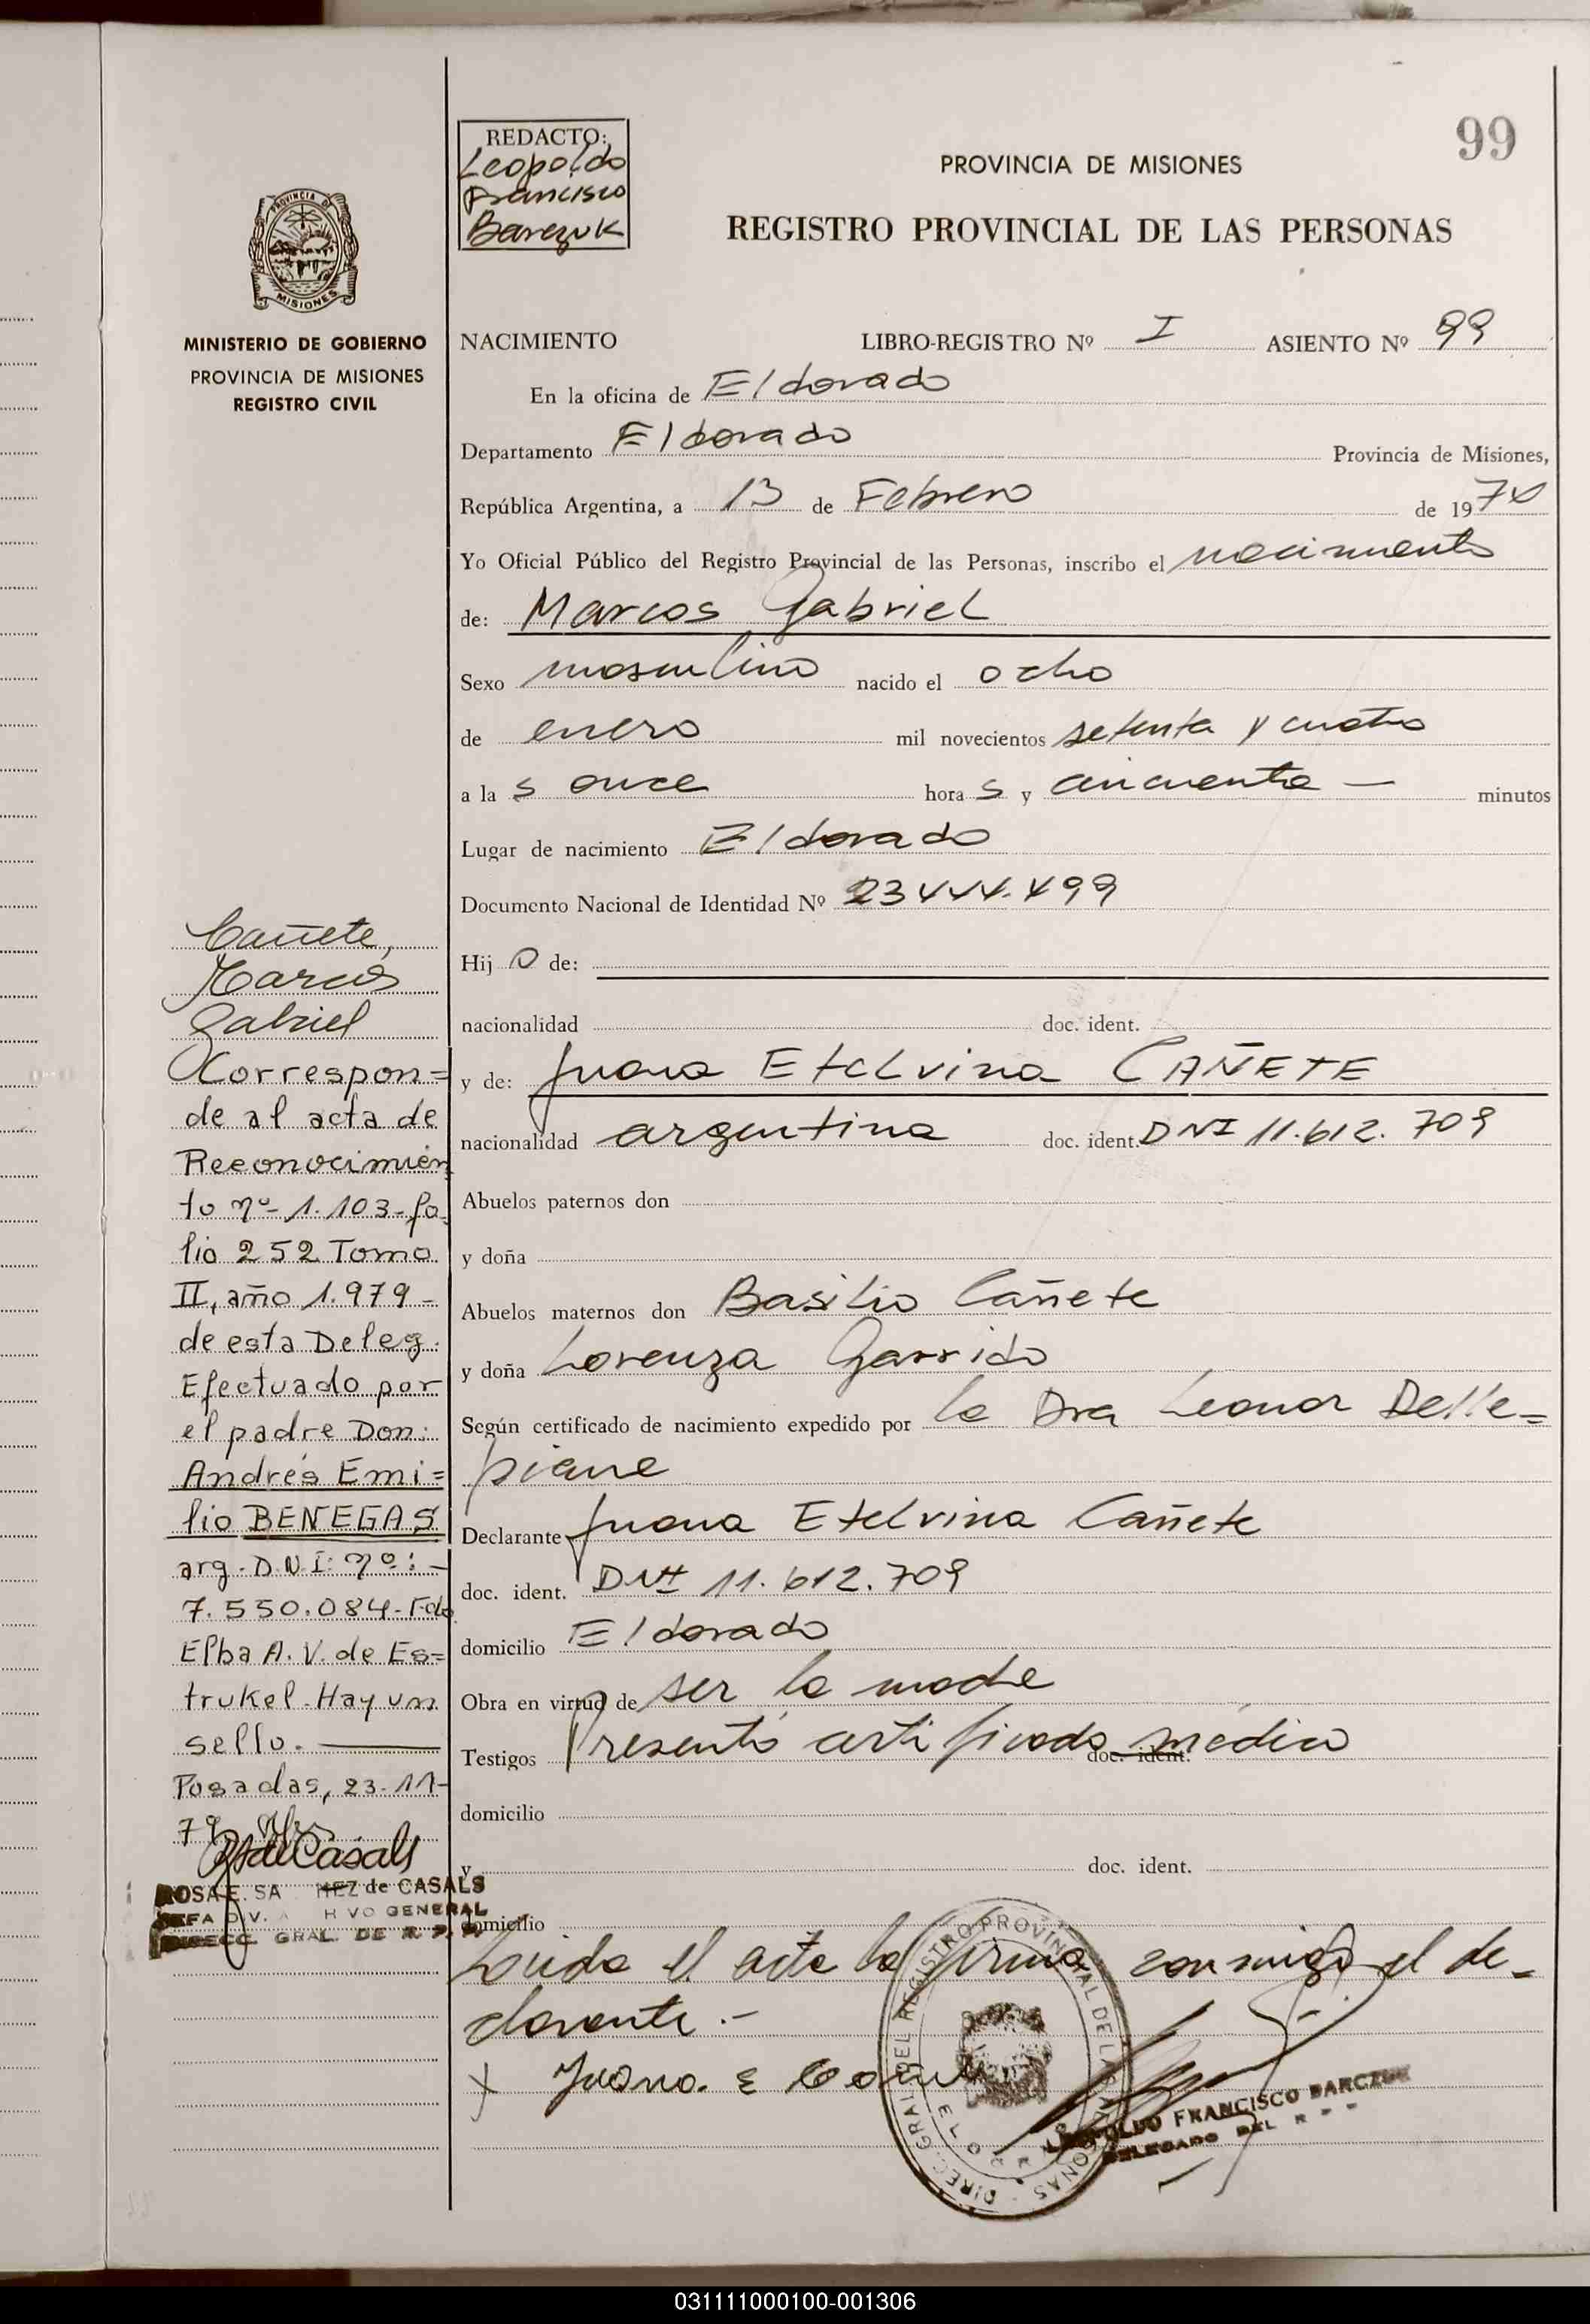 99
REDACTO:
Leopoldo
Francisco
Barczuk
PROVINCIA DE MISIONES
REGISTRO PROVINCIAL DE LAS PERSONAS
PROVINCIA DE
MISIONES
MINISTERIO DE GOBIERNO
PROVINCIA DE MISIONES
REGISTRO CIVIL
NACIMIENTO LIBRO-REGISTRO Nº I ASIENTO Nº 99
En la oficina de Eldorado
Departamento Eldorado Provincia de Misiones,
República Argentina, a 13 de Febrero de 1974
Yo Oficial Público del Registro Provincial de las Personas, inscribo el nacimiento
de: Marcos Gabriel
Sexo masculino nacido el ocho
de enero mil novecientos setenta y cuatro
a la s once hora s y cincuenta — minutos
Lugar de nacimiento Eldorado
Documento Nacional de Identidad Nº 23444.499
Hij o de:
nacionalidad doc. ident.
y de: Juana Etelvina CAÑETE
nacionalidad argentina doc. ident. DNI 11.612.709
Abuelos paternos don
y doña
Abuelos maternos don Basilio Cañete
y doña Lorenza Garrido
Según certificado de nacimiento expedido por la Dra Leonor Delle=
piane
Declarante Juana Etelvina Cañete
doc. ident. DNI 11.612.709
domicilio Eldorado
Obra en virtud de ser la madre
Testigos Presentó certificado médico doc. ident.
domicilio
y doc. ident.
domicilio
Leida el acta la firma conmigo el de-
clarante.-
x Juana E Cañete
DIREC. GRAL. DEL REGISTRO PROVINCIAL DE LAS PERSONAS
LEOPOLDO FRANCISCO BARCZUK
DELEGADO DEL R P P
Cañete,
Marcos
Gabriel
Correspon=
de al acta de
Reconocimien
to nº 1.103-fo
lio 252 Tomo
II, año 1.979-
de esta Deleg.
Efectuado por
el padre Don:
Andrés Emi=
lio BENEGAS
arg. D.N.I: nº: -
7.550.084-Fdo
Elba A. V. de Es=
trukel-Hay un
sello.
Posadas, 23-11-
79
ROSA E. SA HEZ de CASALS
JEFA DIV. A H VO GENERAL
DIRECC. GRAL. DE R. P. P.
031111000100-001306